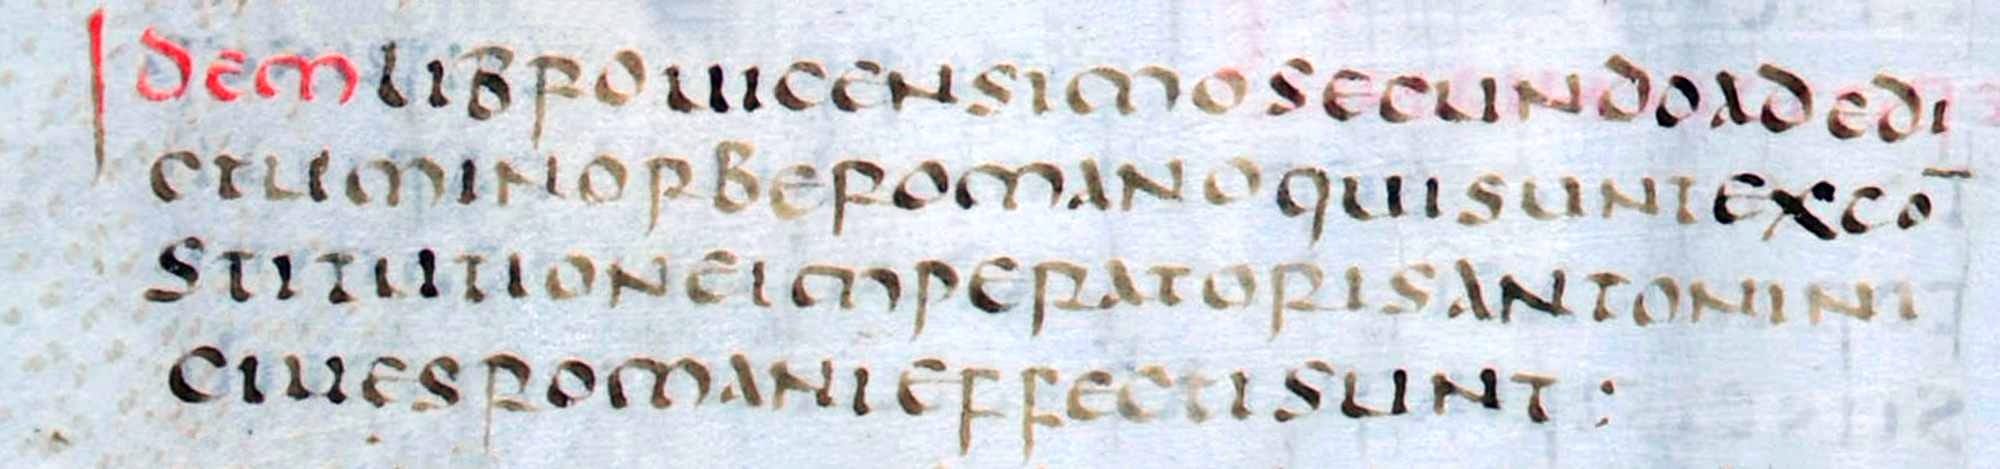 Idem libro uicensimo secundo ad edi
ctum in orbe romano qui sunt ex cō
stitutione imperatoris antonini
ciues romani effecti sunt :